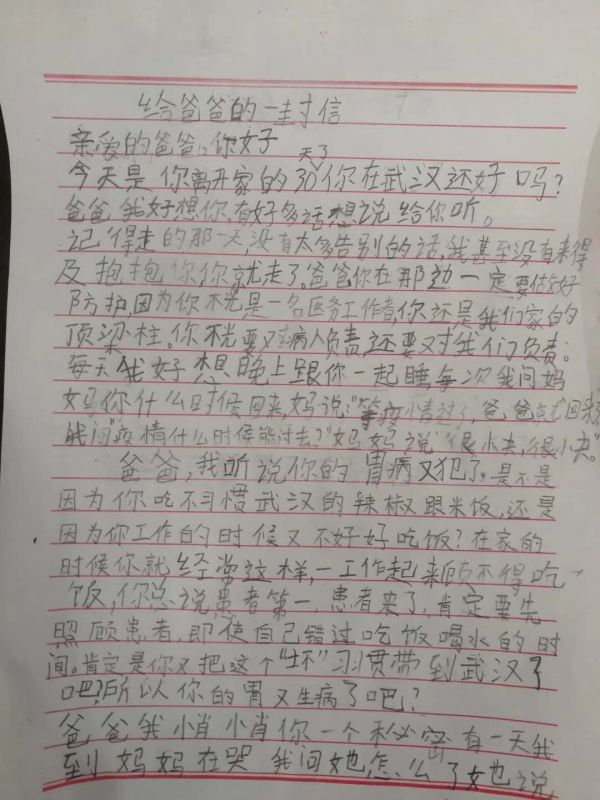 给爸爸的一封信
亲爱的爸爸,你好
天了
今天是你离开家的30你在武汉还好吗?
爸爸我好想你,有好多话想说给你听。
记得走的那一天没有太多告别的话,我甚至没有来得
及抱抱你,你就走了。爸爸你在那边一定要做好
防护,因为你不光是一名医务工作者,你还是我们家的
顶梁柱。你不光要对病人负责还要对我们负责。
每天我好想晚上跟你一起睡每次我问妈
妈你什么时候回来,妈说:"等疫情过了,爸爸就回来
我问"疫情什么时候能过去?"妈妈说"很快,很快。"
爸爸,我听说你的胃病又犯了。是不是
因为你吃不习惯武汉的辣椒跟米饭,还是
因为你工作的时候又不好好吃饭?在家的
时候你就经常这样,一工作起来顾不得吃
饭,你总说患者第一,患者来了,肯定要先
照顾患者,即使自己错过吃饭喝水的时
间。肯定是你又把这个"坏"习惯带到武汉了
吧?所以你的胃又生病了吧?
爸爸我小肖小肖你一个秘密有一天我
到妈妈在哭 我问她怎么了她说